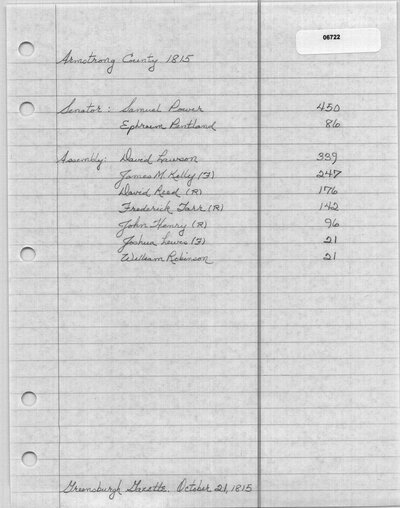 06722
Armstrong County 1815
Senator: Samuel Power 450
Ephraim Pentland 86
Assembly: David Lawson 339
James M. Kelly (F) 247
David Reed (R) 176
Frederick Tarr (R) 142
John Henry (R) 96
Joshua Lewis (F) 21
William Robinson 21
Greensburgh Gazette. October 21, 1815